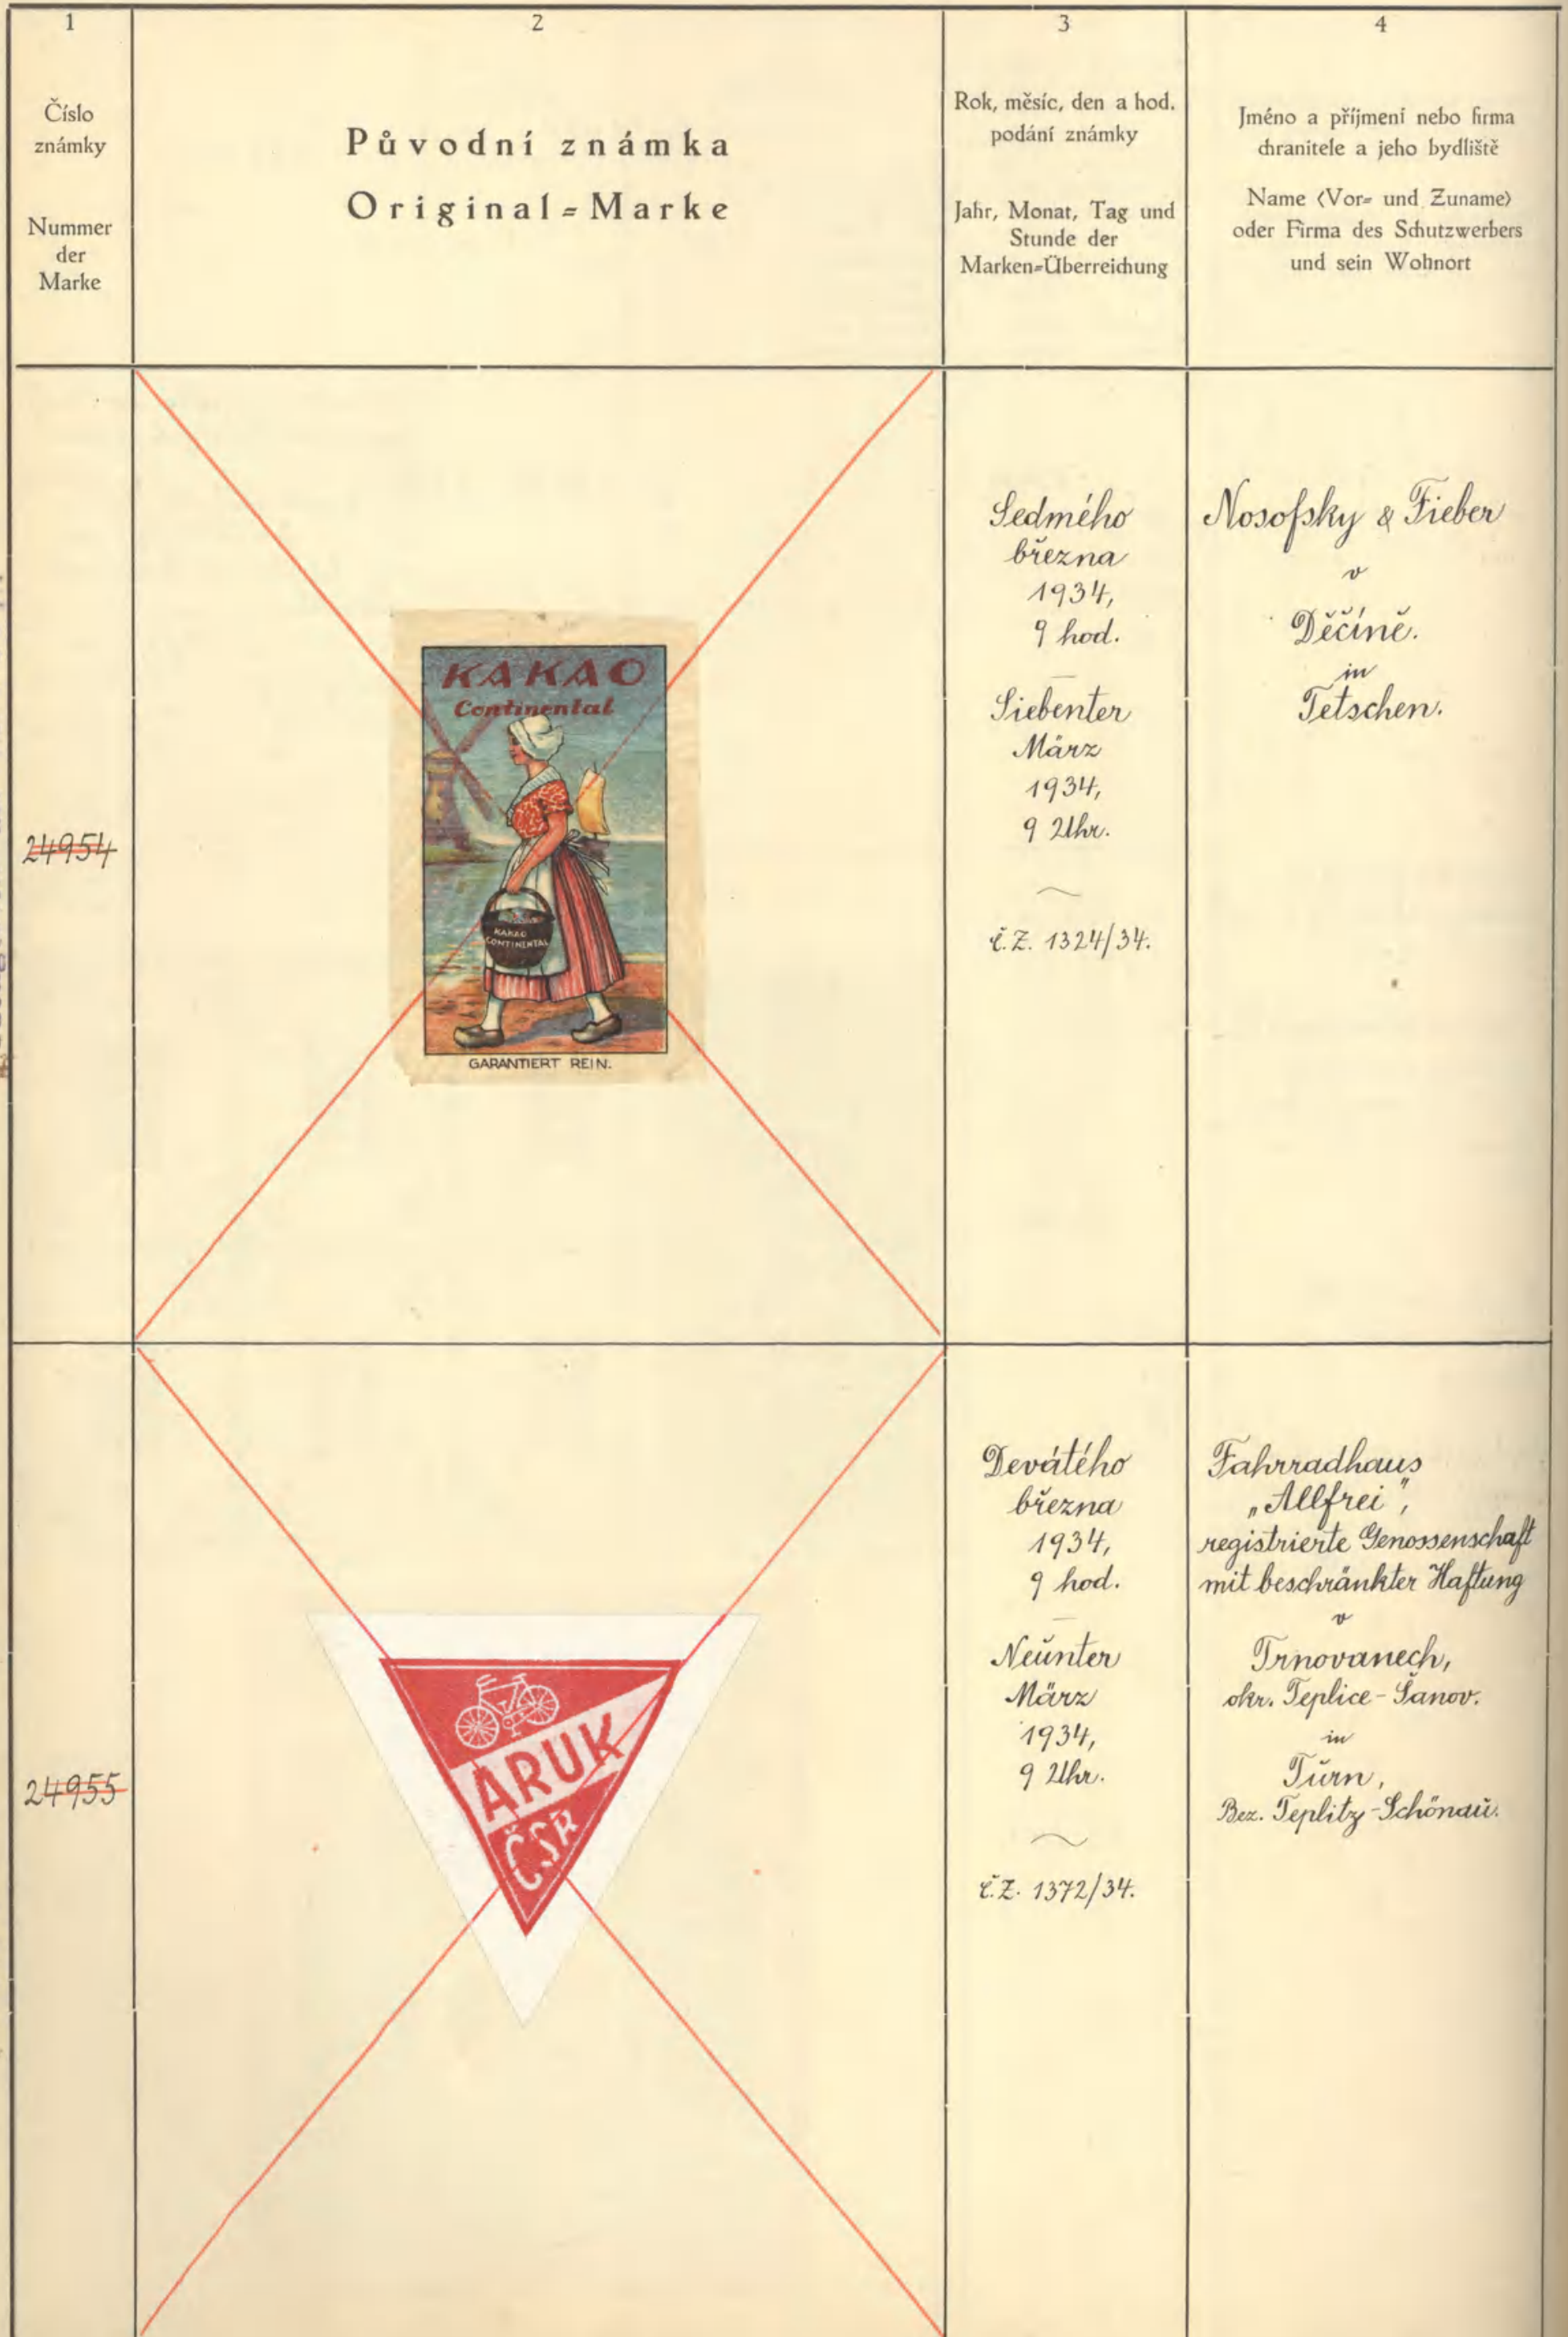 1
2
3
4
Číslo
známky
Nummer
der
Marke
Původní známka
Original-Marke
Rok, měsíc, den a hod.
podání známky
Jahr, Monat, Tag und
Stunde der
Marken-Überreichung
Jméno a příjmení nebo firma
chranitele a jeho bydliště
Name (Vor- und Zuname)
oder Firma des Schutzwerbers
und sein Wohnort
24954
KAKAO
Continental
KAKAO
CONTINENTAL
GARANTIERT REIN.
Sedmého
března
1934,
9 hod.
Siebenter
März
1934,
9 Uhr.
č.Z. 1324/34.
Nosofsky & Fieber
v
Děčíně.
in
Tetschen.
24955
ARUK
ČSR
Devátého
března
1934,
9 hod.
Neunter
März
1934,
9 Uhr.
č.Z. 1372/34.
Fahrradhaus
„Allfrei",
registrierte Genossenschaft
mit beschränkter Haftung
v
Trnovanech,
okr. Teplice-Šanov.
in
Turn,
Bez. Teplitz-Schönau.